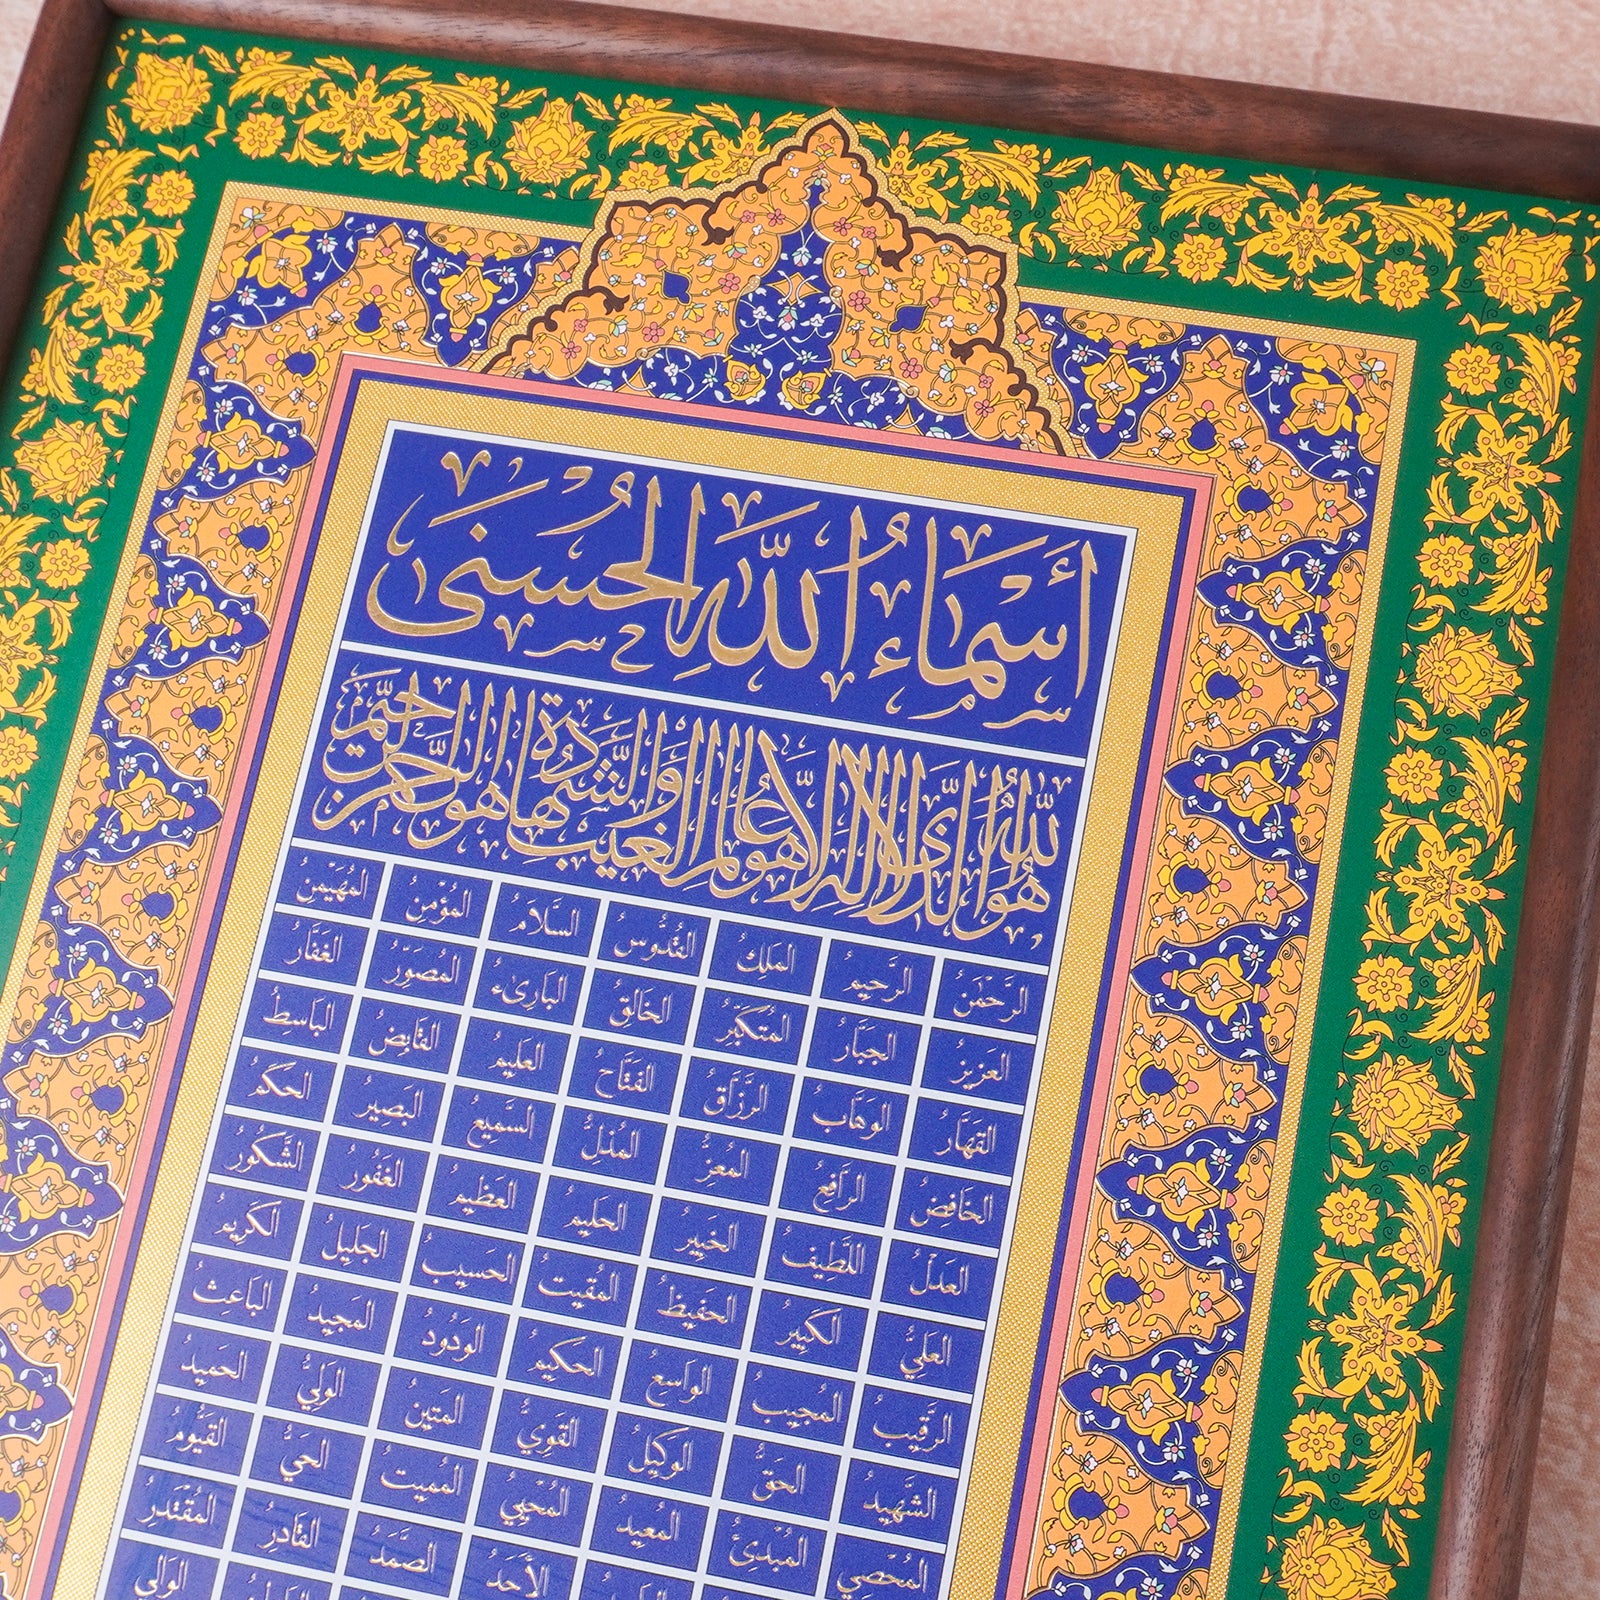 أَسْمَاءُ اللّٰهِ الحُسْنَى
هُوَ اللّٰهُ الَّذِي لَا إِلٰهَ إِلَّا هُوَ عَالِمُ الْغَيْبِ وَالشَّهَادَةِ هُوَ الرَّحْمٰنُ الرَّحِيمُ
الرَّحْمٰنُ الرَّحِيمُ المَلِكُ القُدُّوسُ السَّلَامُ المُؤْمِنُ المُهَيْمِنُ
العَزِيزُ الجَبَّارُ المُتَكَبِّرُ الخَالِقُ البَارِىءُ المُصَوِّرُ الغَفَّارُ
القَهَّارُ الوَهَّابُ الرَّزَّاقُ الفَتَّاحُ العَلِيمُ القَابِضُ البَاسِطُ
الخَافِضُ الرَافِعُ المُعِزُّ المُذِلُّ السَّمِيعُ البَصِيرُ الحَكَمُ
العَدْلُ اللَّطِيفُ الخَبِيرُ الحَلِيمُ العَظِيمُ الغَفُورُ الشَّكُورُ
العَلِيُّ الكَبِيرُ الحَفِيظُ المُقِيتُ الحَسِيبُ الجَلِيلُ الكَرِيمُ
الرَّقِيبُ المُجِيبُ الوَاسِعُ الحَكِيمُ الوَدُودُ المَجِيدُ البَاعِثُ
الشَّهِيدُ الحَقُّ الوَكِيلُ القَوِيُّ المَتِينُ الوَلِيُّ الحَمِيدُ
المُحْصِي المُبْدِئُ المُعِيدُ المُحْيِي المُمِيتُ الحَيُّ القَيُّومُ
الأَحَدُ الصَّمَدُ القَادِرُ المُقْتَدِرُ
الوَالِي